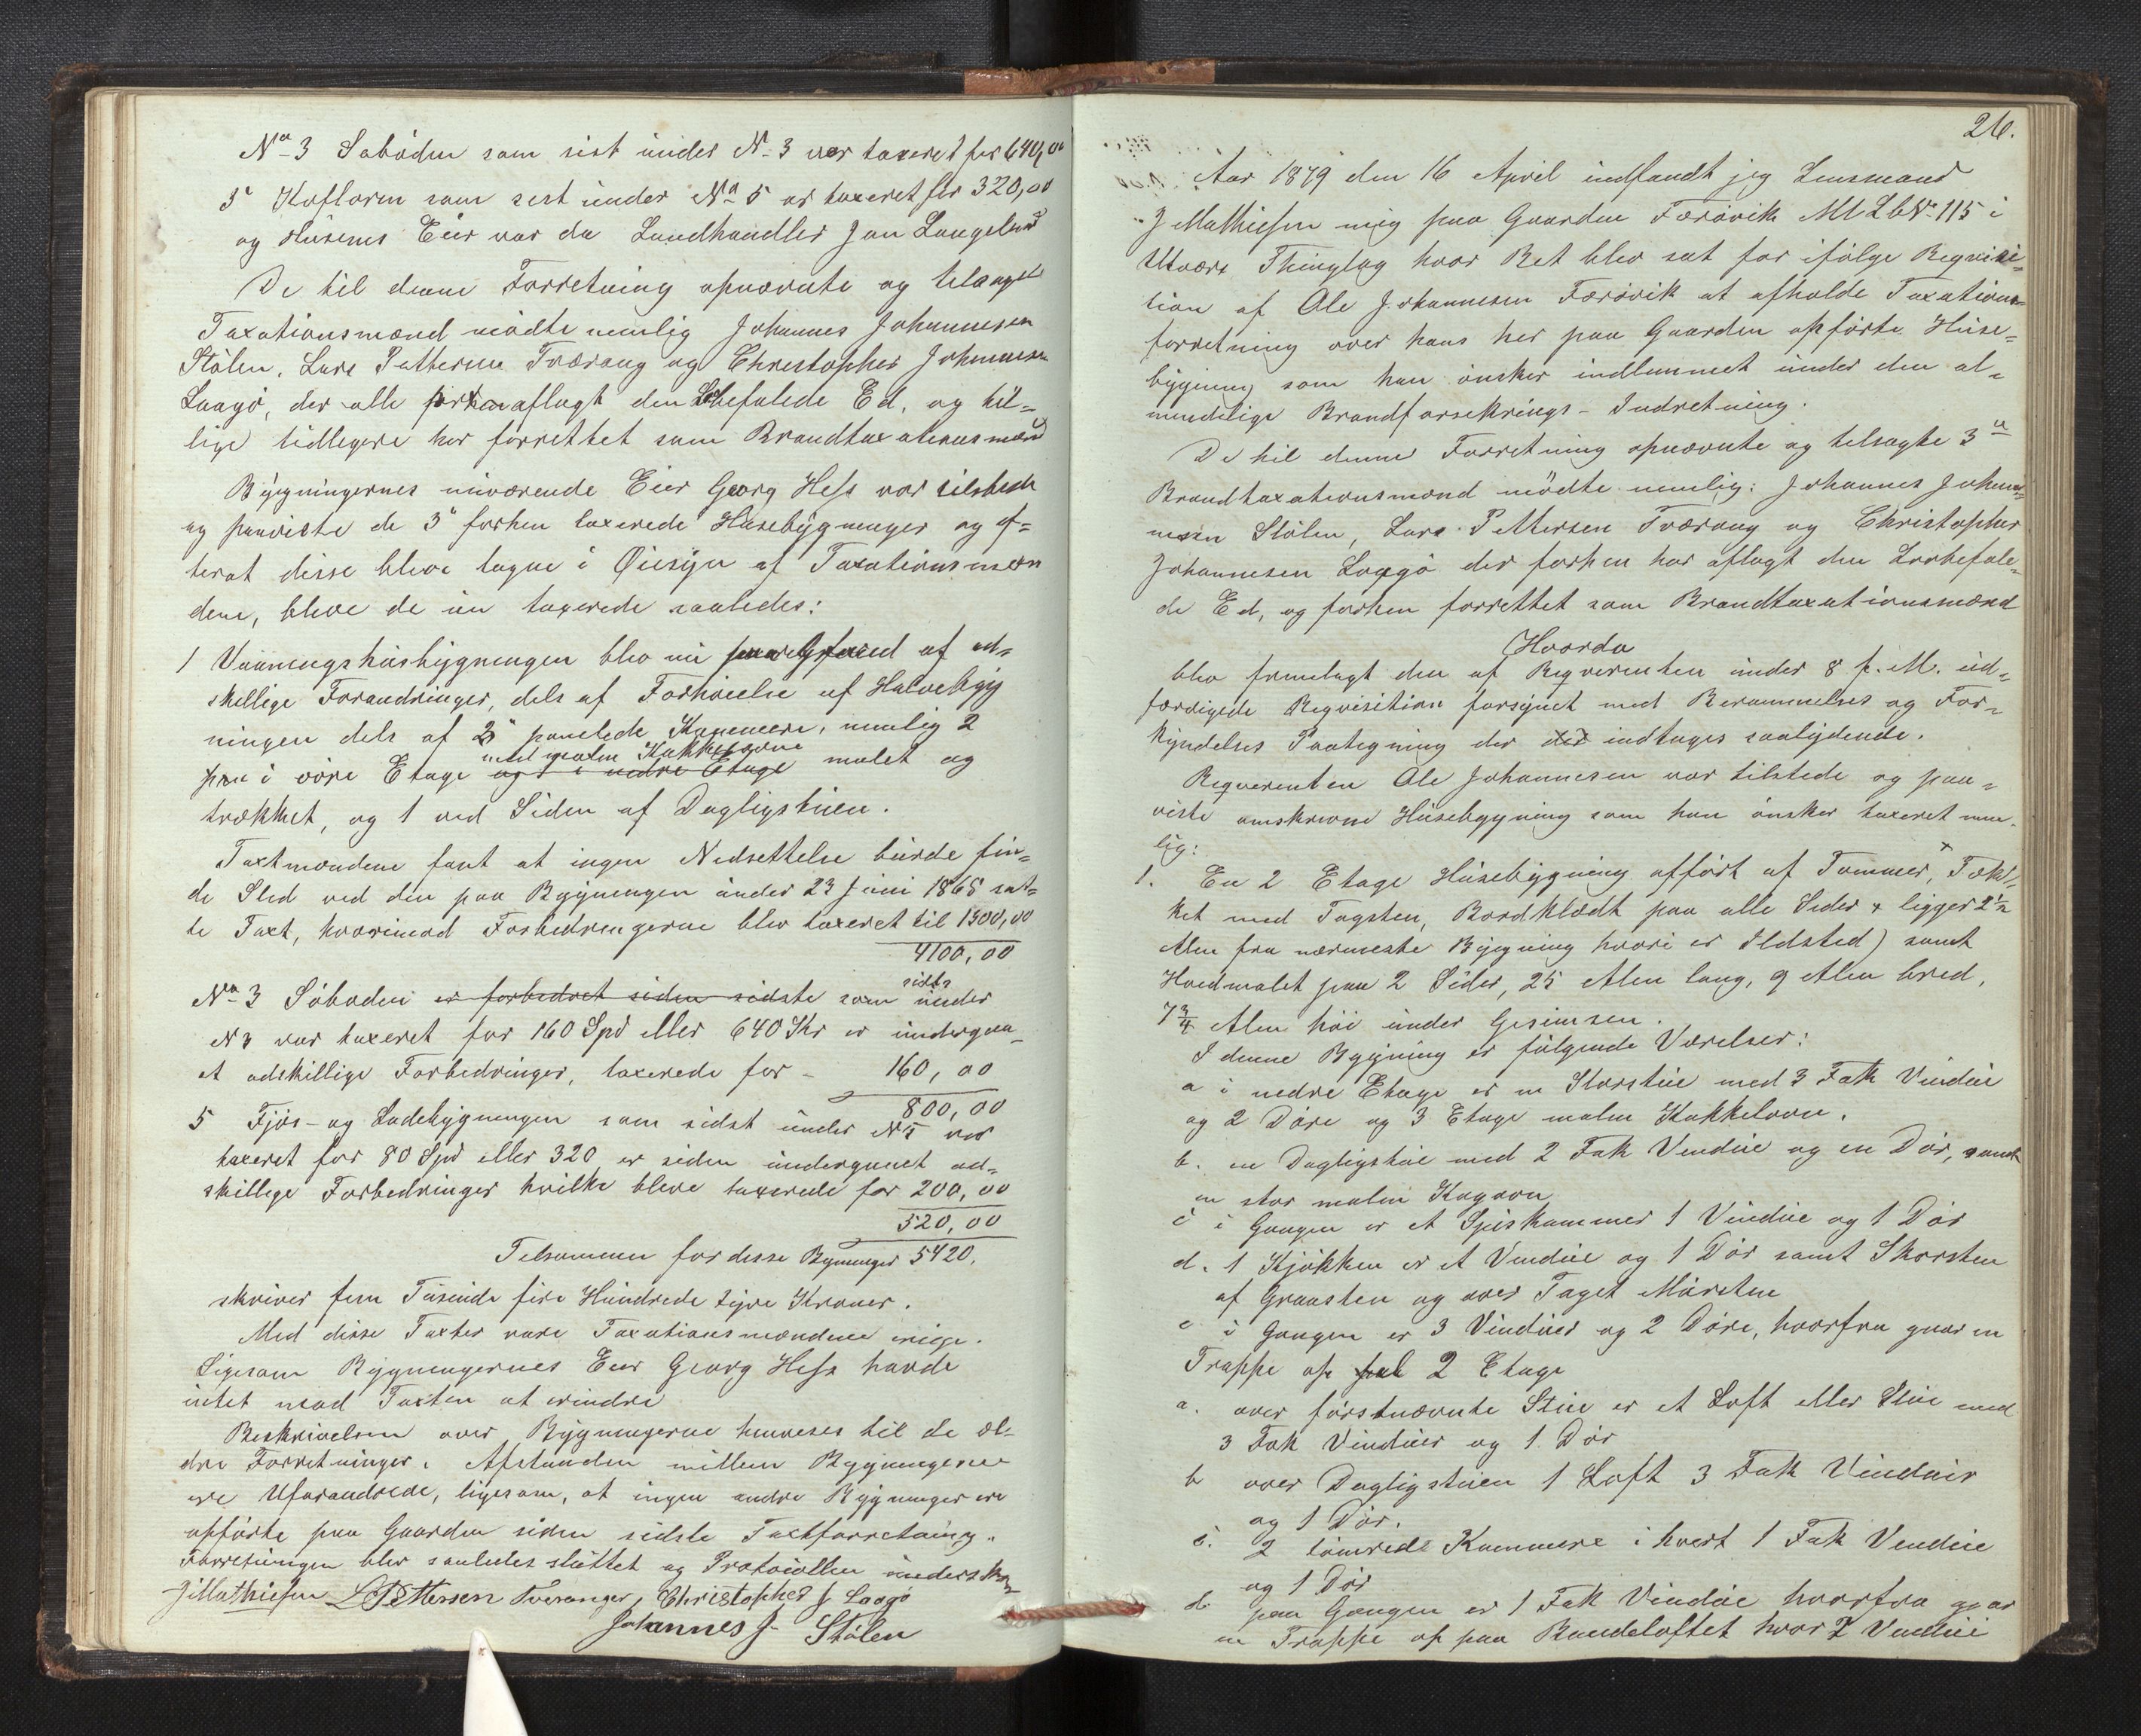 No 3 Søboden som sist under No 3 var taxeret for 640,00
5 Kofloren som sist under No 5 er taxeret for 320,00
og Husenes Eier var da Landhandler Jan Langeland
De til denne Forretning opnævnte og tilsagte
Taxationsmænd mødte nemlig Johannes Johannesen
Stølen, Lars Pettersen Tværang og Christopher Johannesen
Laagø, der alle forhen aflagt den Lobefalede Ed, og til-
lige tidligere har forrettet som Brandtaxationsmænd
Bygningernes nuværende Eier Georg Hess var tilstede
og paaviste de 3de forhen taxerede Husebygninger og ef-
terat disse bleve tagne i Øiesyn af Taxationsmæn
dene, bleve de nu taxerede saaledes:
1 Vaaningshusbygningen blev nu paa Grund af ad-
skillige Forandringer, dels af Forhøielse af Halvebyg
ningen dels af 3 panelede Kammere, nemlig 2
i øvre Etage og 1 i nedre Etage malet og
med malm Kakkelovne
trækket, og 1 ved Siden af Dagligstuen.
Taxtmændene fant at ingen Nedsettelse burde fin-
de Sted ved den paa Bygningen under 23 Juni 1868 sat-
te Taxt, hvorimod Forbedringerne blev taxeret til 1300,00
4100,00
No 3 Søboden er forbedret siden sidste som sidst under
N 3 var taxeret for 160 Spd eller 640 Kr er undergaa-
et adskillige Forbedringer, taxerede for - 160,00
800,00
5 Fjøs- og Ladebygningen som sidst under N 5 var
taxeret for 80 Spd eller 320 er siden undergaaet ad-
skillige Forbedringer hvilke bleve taxerede for 200,00
520,00
Tilsammen for disse Bygninger 5420,
skriver fem Tusinde fire Hundrede tyve Kroner.
Med disse Taxter vare Taxationsmændene enige.
Ligesom Bygningernes Eier Georg Hess havde
intet mod Taxten at erindre
Beskrivelsen over Bygningerne henvises til de æl-
dre Forretninger. Afstanden mellem Bygningerne
ere Uforandrede, ligesom, at ingen andre Bygninger ere
opførte paa Gaarden siden sidste Taxtforretning.
Forretningen blev saaledes sluttet og Protocollen underskr
J Mathiesen L Pettersen Tveranger, Christopher J Laagø
Johannes J. Stølen
26.
Aar 1879 den 16 April indfandt jeg Lensmand
J Mathiesen mig paa Gaarden Færøvik Ml Lb No 115 i
Utvær Thinglag hvor Ret blev sat for ifølge Reqvisi-
tion af Ole Johannesen Færøvik at afholde Taxations-
forretning over hans her paa Gaarden opførte Huse-
bygning som han ønsker indlemmet under den al-
mindelige Brandforsekrings-Indretning.
De til denne Forretning opnævnte og tilsagte 3de
Brandtaxationsmænd mødte nemlig: Johannes Johan-
nesen Stølen, Lars Pettersen Tværang og Christopher
Johannesen Laagø der forhen har aflagt den Lovbefale-
de Ed, og forhen forrettet som Brandtaxationsmænd
Hvorda
blev fremlagt den af Reqverenten under 8 f. M. ud-
færdigede Reqvisition forsynet med Berammelses og For-
kyndelses Paategning der indtages saalydende.
Reqverenten Ole Johannesen var tilstede og paa-
viste omskrevne Husebygning som han ønsker taxeret nem-
lig:
1. En 2 Etage Husebygning opført af Tømmer, Tæk-
ket med Tagsten, Bordklædt paa alle Sider x ligger 2 1/2
Alen fra nærmeste Bygning hvori er Ildsted) samt
Hvidmalet paa 2 Sider, 25 Alen lang, 9 Alen bred,
7 3/4 Alen høi under Gesimsen.
I denne Bygning er følgende Værelser:
a i nedre Etage er en Storstue med 3 Fak Vindue
og 2 Døre og 3 Etage malm Kakkelovn.
b. en Dagligstue med 2 Fak Vindue og en Dør, samt
en stor malm Kogovn
c i Gangen er et Spiskammer 1 Vindue og 1 Dør
d. 1 Kjøkken er et Vindue og 1 Dør samt Skorsten
af Graasten og over Taget Mursten
e i Gangen er 3 Vinduer og 2 Døre, hvorfra gaar en
Trappe op 2 Etage
a. over førstnævnte Stue er et Loft eller Stue med
3 Fak Vinduer og 1 Dør
b over Dagligstuen 1 Loft 3 Fak Vinduer
og 1 Dør.
c. 2 tømrede Kammere i hvert 1 Fak Vindue
og 1 Dør
d paa Gangen er 1 Fak Vindue hvorfra gaar
en Trappe op paa Rundeloftet hvor 2 Vindui